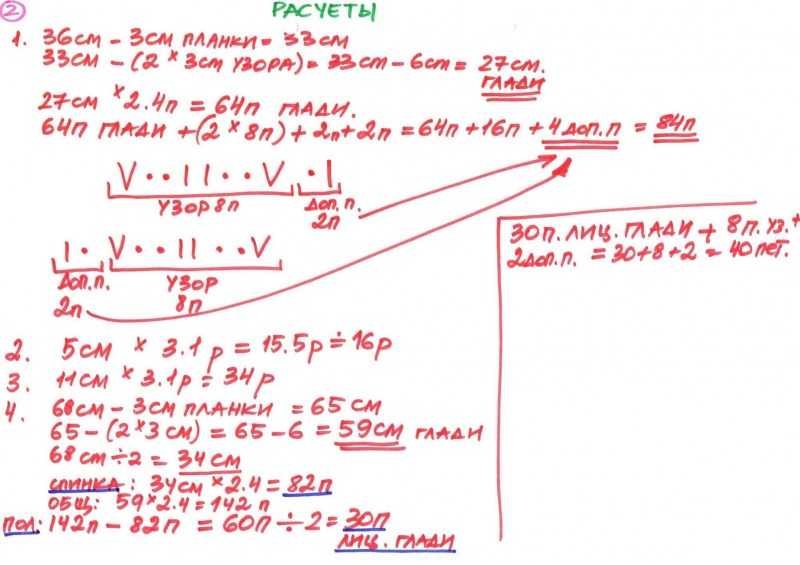 2
РАСЧЕТЫ
1. 36см - 3см ПЛАНКИ = 33см
33см - (2 × 3см УЗОРА) = 33cm - 6cm = 27см.
ГЛАДИ
27см × 2.4п = 64п ГЛАДИ.
64п ГЛАДИ + (2 × 8п) + 2п + 2п = 64п + 16п + 4 ДОП.П = 84п
V • • I I • • V • I
УЗОР 8п ДОП. П.
2п
I • V • • I I • • V
ДОП. П. УЗОР
2п 8п
30П. ЛИЦ. ГЛАДИ + 8П. УЗ. +
2ДОП.П. = 30+8+2 = 40ПЕТ.
2. 5см × 3.1р = 15.5р ÷ 16р
3. 11см × 3.1р = 34р
4. 68см - 3см ПЛАНКИ = 65см
65 - (2×3см) = 65 - 6 = 59см ГЛАДИ
68cm ÷ 2 = 34см
СПИНКА: 34см × 2.4 = 82п
ОБЩ: 59×2.4 = 142п
ПОЛ: 142п - 82п = 60п ÷ 2 = 30п
ЛИЦ. ГЛАДИ